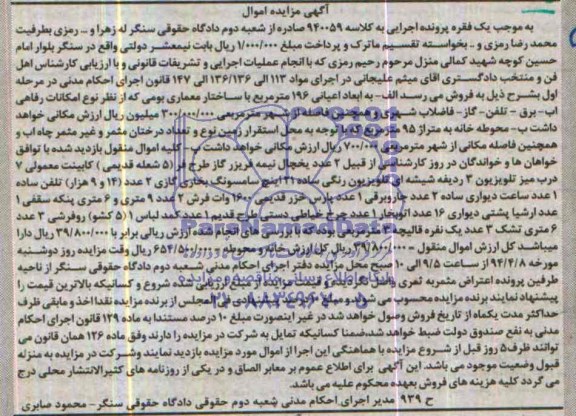 آگهی مزایده اموال
به موجب یک فقره پرونده اجرایی به کلاسه ۹۴۰۰۵۹ صادره از شعبه دوم دادگاه حقوقی سنگر له زهرا و - رمزی بطرفیت
محمد رضا رمزی و - بخواسته تقسیم ماترک و پرداخت مبلغ ۱/۰۰۰/۰۰۰ ریال بابت نیمعشر دولتی واقع در سنگر بلوار امام
حسین کوچه شهید کمالی منزل مرحوم رحیم رمزی که با انجام عملیات اجرایی و تشریفات قانونی و با ارزیابی کارشناس اهل
فن و منتخب دادگستری اقای میثم علیجانی در اجرای مواد ۱۱۳ الی ۱۳۶/۱۳۶ الی ۱۴۷ قانون اجرای احکام مدنی در مرحله
اول بشرح ذیل به فروش می رسد. الف- به ابعاد اعیانی ۱۹۶ مترمربع با ساختار معماری بومی که از نظر نوع امکانات رفاهی
اب- برق - تلفن- گاز- فاضلاب شهری و همچنین فاصله از شهر مترمربعی ۳۰۰/۰۰۰ میلیون ریال ارزش مکانی خواهد
داشت ب- محوطه خانه به متراژ ۹۵ مترمربع که با توجه به محل استقرار زمین نوع و تعداد درختان مثمر و غیر مثمر چاه اب و
همچنین فاصله مکانی از شهر مترمربعی ۷۰۰/۰۰۰ ریال ارزش مکانی خواهد داشت پ- کلیه اموال منقول بازدید شده با توافق
خواهان ها و خواندگان در روز کارشناسی از قبیل ۲ عدد یخچال نیمه فریزر گاز طرح فر (۵ شعله قدیمی) کابینت معمولی ۷
درب میز تلویزیون ۳ ردیفه شیشه ای تلویزیون رنگی ساده ۲۱ اینچ سامسونگ بخاری گازی ۲ عدد (۱۴ و ۹ هزار) تلفن ساده
۱ عدد ساعت دیواری ساده ۲ عدد جاروبرقی ۱ عدد پارس خزر قدیمی ۱۶۰۰ وات فرش ۲ عدد ۹ متری و ۶ متری پنکه سقفی ۱
عدد ارشیا پشتی دیواری ۱۶ عدد اتوبخار ۱ عدد چرخ خیاطی دستی طرح قدیم ۱ عدد کمد لباس ۱ (۵ کشو) روفرشی ۳ عدد
۶ متری تشک ۳ عدد یک نفره قالیچه ۲ های انجام شده دارای ارزش ریالی برابر با ۳۹/۸۰۰/۰۰۰ ریال دارا
میباشد کل ارزش اموال منقول - ۳۹/۸۰۰/۰۰۰ ریال کل ارزش خانه و محوطه - ۶۵۴/۵۰۰/۰۰۰ ریال وقت مزایده روز دوشنبه
مورخه ۹۴/۴/۸ از ساعت ۹/۵ الی ۱۰ صبح محل مزایده دفتر اجرای احکام مدنی شعبه دوم دادگاه حقوقی سنگر از ناحیه
طرفین پرونده اعتراض مثمربه ثمری واصل نگردیده و قیمت مزایده از مبلغ ارزیابی شده شروع و کسانیکه بالاترین قیمت را
پیشنهاد نمایند برنده مزایده محسوب می شوند و مبلغ ۱۰ درصد قیمت پیشنهادی فی المجلس از برنده مزایده نقدا اخذ و مابقی ظرف
حداکثر مدت یکماه از تاریخ فروش وصول خواهد شد در غیر اینصورت مبلغ ۱۰ درصد مستندا به ماده ۱۲۹ قانون اجرای احکام
مدنی به نفع صندوق دولت ضبط خواهد شد، ضمنا کسانیکه تمایل به شرکت در مزایده را دارند وفق ماده ۱۲۶ همان قانون می
توانند ظرف ۵ روز قبل از شروع مزایده با هماهنگی این اجرا از اموال مورد مزایده بازدید نمایند وشرکت در مزایده به منزله
قبول وضعیت موجود می باشد. این آگهی برای اطلاع عموم بر معابر الصاق و در یکی از روزنامه های کثیرالانتشار محلی درج
می گردد کلیه هزینه های فروش بعهده محکوم علیه می باشد.
ح ۹۳۹ مدیر اجرای احکام مدنی شعبه دوم حقوقی دادگاه حقوقی سنگر- محمود صابری